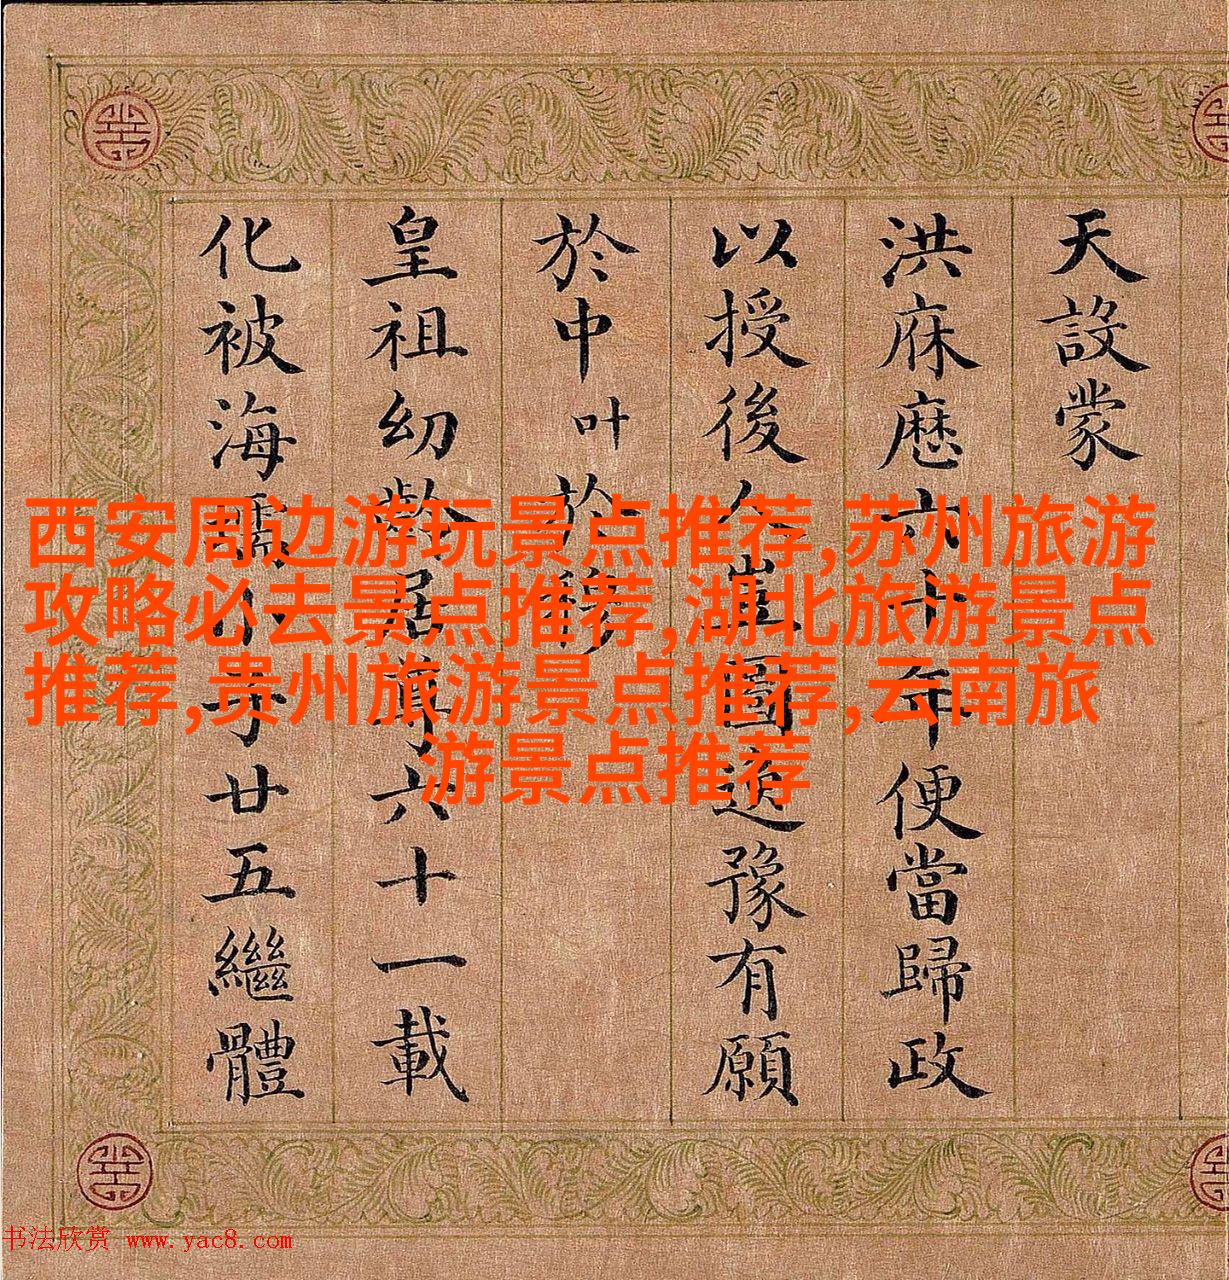 天設蒙
洪庥歷六十年便當歸政
以授後人圖豫有願
於中叶於
皇祖幼齡居尊六十一載
化被海小子廿五繼體
西安周边游玩景点推荐,苏州旅游
攻略必去景点推荐,湖北旅游景点
推荐,贵州旅游景点推荐,云南旅
游景点推荐
书法欣赏 www.yac8.com